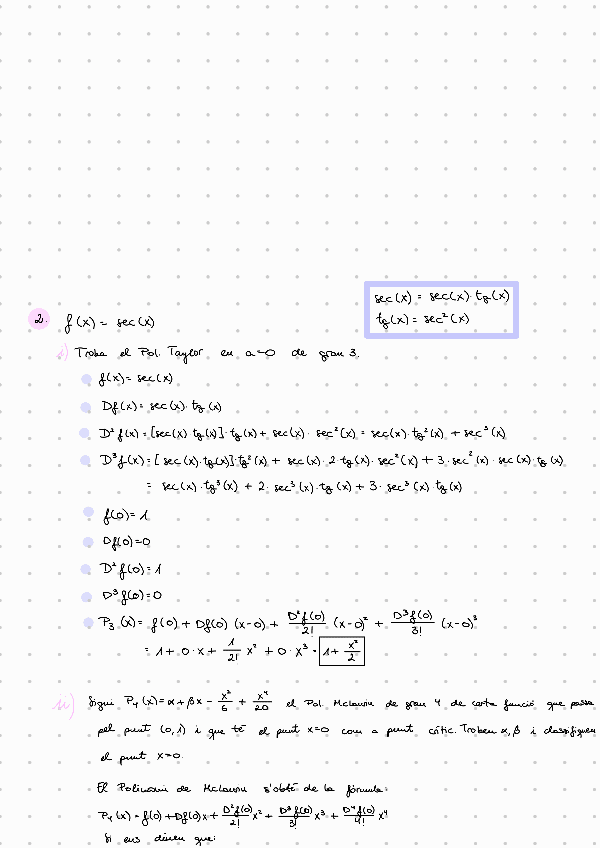 sec(x) = sec(x)·tg(x)
tg(x) = sec²(x)
2. f(x) = sec(x)
i) Troba el Pol. Taylor en a=0 de grau 3.
f(x) = sec(x)
Df(x) = sec(x)·tg(x)
D²f(x) = [sec(x)·tg(x)]·tg(x) + sec(x)·sec²(x) = sec(x)·tg²(x) + sec³(x)
D³f(x) = [sec(x)·tg(x)]·tg²(x) + sec(x)·2·tg(x)·sec²(x) + 3·sec²(x)·sec(x)·tg(x)
= sec(x)·tg³(x) + 2·sec³(x)·tg(x) + 3·sec³(x)·tg(x)
f(0) = 1
Df(0) = 0
D²f(0) = 1
D³f(0) = 0
P₃(x) = f(0) + Df(0)(x-0) + D²f(0)/2! (x-0)² + D³f(0)/3! (x-0)³
= 1 + 0·x + 1/2! x² + 0·x³ = 1 + x²/2
ii) Sigui P₄(x) = α + βx - x²/6 + x⁴/20 el Pol. McLaurin de grau 4 de certa funció que passa
pel punt (0,1) i que té el punt x=0 com a punt crític. Troben α, β i classifiquen
el punt x=0.
El Polinomi de McLaurin s'obté de la fórmula:
P₄(x) = f(0) + Df(0)x + D²f(0)/2! x² + D³f(0)/3! x³ + D⁴f(0)/4! x⁴
Si ens diuen que: